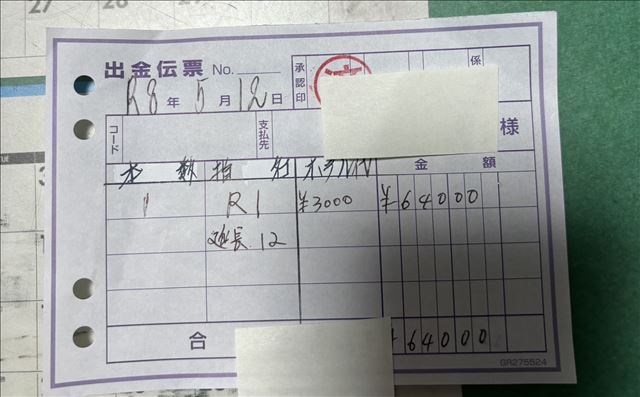 27
28
出金伝票 No.
承認印
係
R8年 5月 12日
コード
支払先
様
本数 指名 ホテル代 金額
1 R1 ¥3000 ¥64000
延長 12
合 ¥64000
GR275524